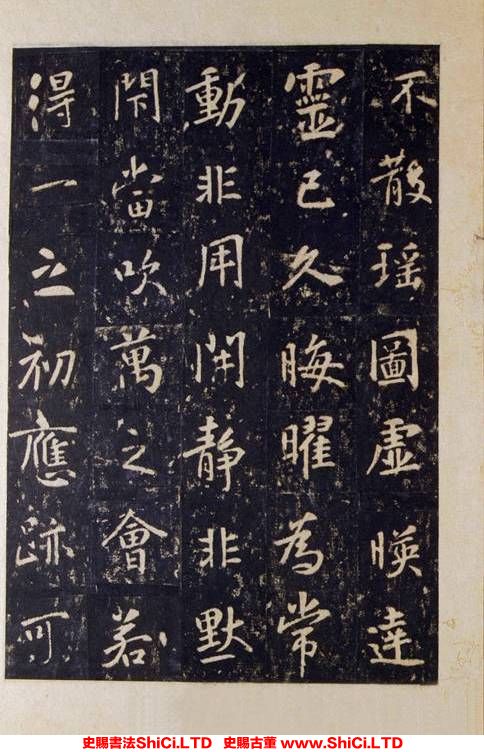 不散瑶圖虛暎達
靈已久晦曜為常
動非用開靜非默
閇當吹萬之會若
得一之初應跡可
史賜書法ShiCi.LTD 史賜古董 www.ShiCi.LTD